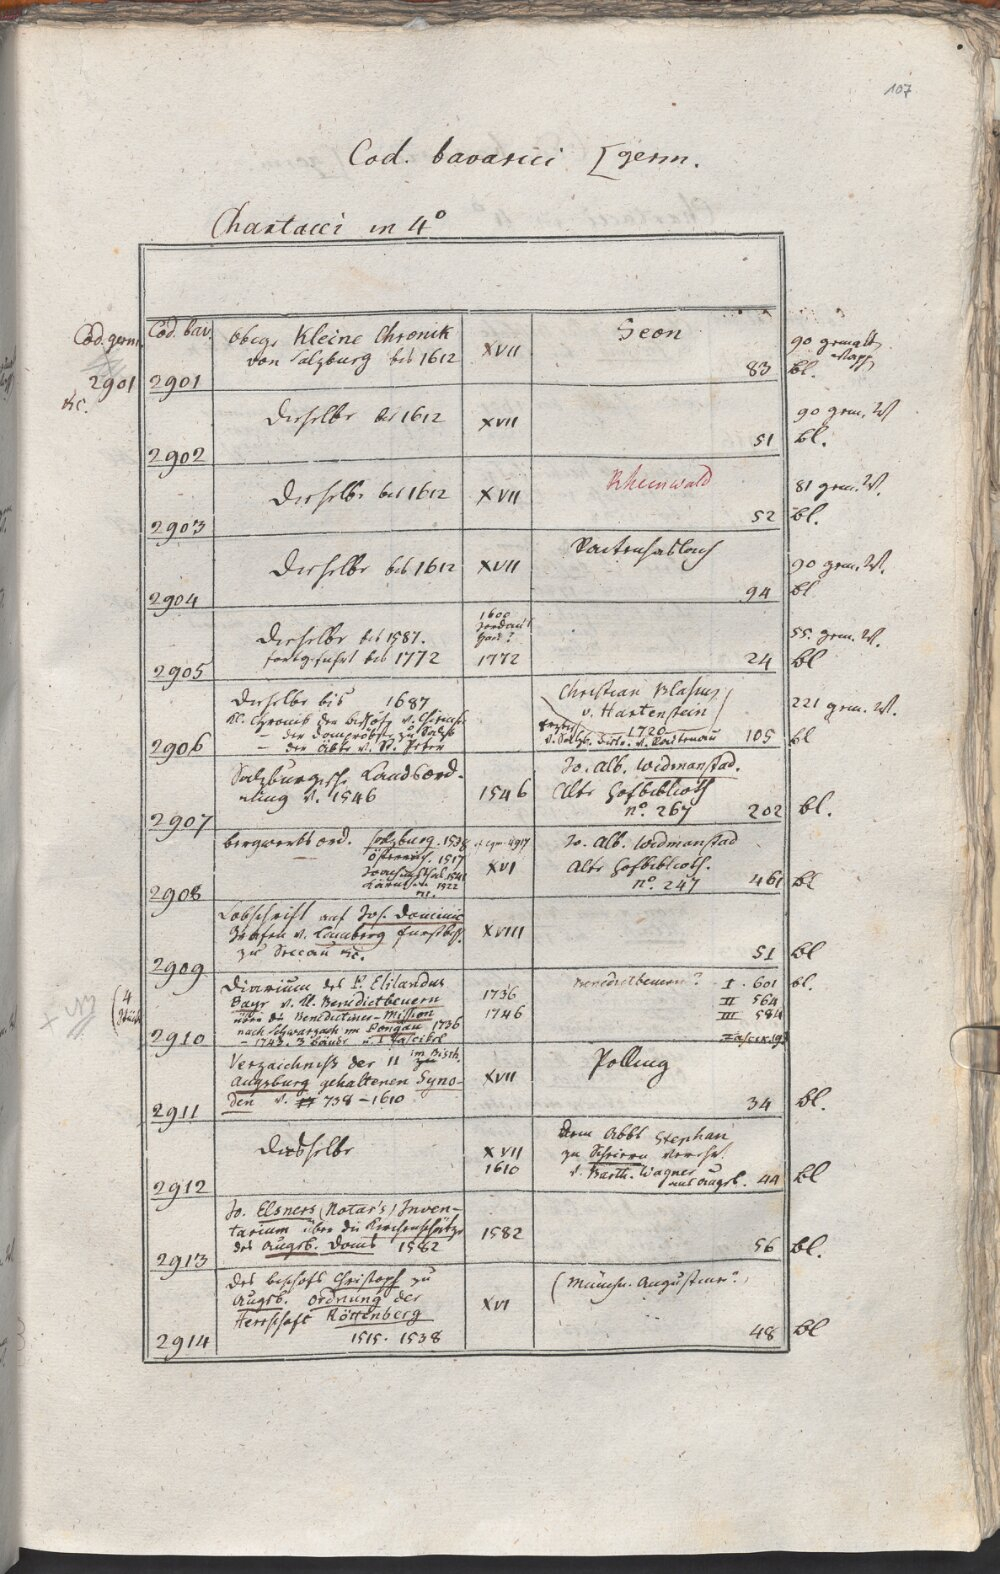 107
Cod. bavarici [germ.
Chartacei in 4°
Cod. germ.
2901
Cod. bav.
2901
obige Kleine Chronik
von Salzburg bis 1612
XVII
Seon
83
90 gemalt
Wapp
bl.
2902
Dieselbe bis 1612
XVII
51
90 gem. W
bl.
2903
Dieselbe bis 1612
XVII
Rheinwald
52
81 gem. W.
bl.
2904
Dieselbe bis 1612
XVII
Raitenhaslach
94
90 gem. W.
bl
2905
Dieselbe bis 1587.
fortgeführt bis 1772
1600
1772
24
55. gem. W.
bl
2906
Dieselbe bis 1687
Kl. Chronik der Bischöfe v. Chiemsee
– der Dompröbste zu Salzb
– der Äbte v. St. Peter
Christian Blasius
v. Hartenstein
1720
105
221 gem. W.
bl
2907
Salzburgische Landsord-
nung v. 1546
1546
Jo. Alb. Widmanstad.
Alte Hofbiblioth
n° 267
202
bl.
2908
Bergwerksord. Salzburg. 1538
Österreich. 1517
Joachimsthal 1541
XVI
Jo. Alb. Widmanstad
Alte Hofbiblioth.
n°. 247
461
bl
2909
Lobschrift auf Jos. Dominic
Grafen v. Lamberg Fürstbisch.
zu Seccau etc.
XVIII
51
bl
4
2910
Diarium des P. Elilandus
Bayr v. U. Benedictbeuern
über die Benedictiner-Mission
nach Schwarzach im Pongau 1736
– 1743. 3 Bände u. 1 Fascikel
1736
1746
Benedictbeuern?
I . 601
II 564
III 584
bl.
2911
Verzeichniß der 11 im Bisth.
Augsburg gehaltenen Syno-
den v. 738–1610
XVII
Polling
34
bl.
2912
Dasselbe
XVII
1610
Dem Abbt Stephan
zu Scheiern verehrt
v. Barth. Wagner
aus Augsb. 44
bl
2913
Jo. Elsners (Notar's) Inven-
tarium über die Kirchenschätze
des Augsb. Doms 1582
1582
56
bl.
2914
Des Bischofs Christoph zu
Augsb. Ordnung der
Herrschaft Röttenberg
1515. 1538
XVI
(Münch. Augustiner?)
48
bl